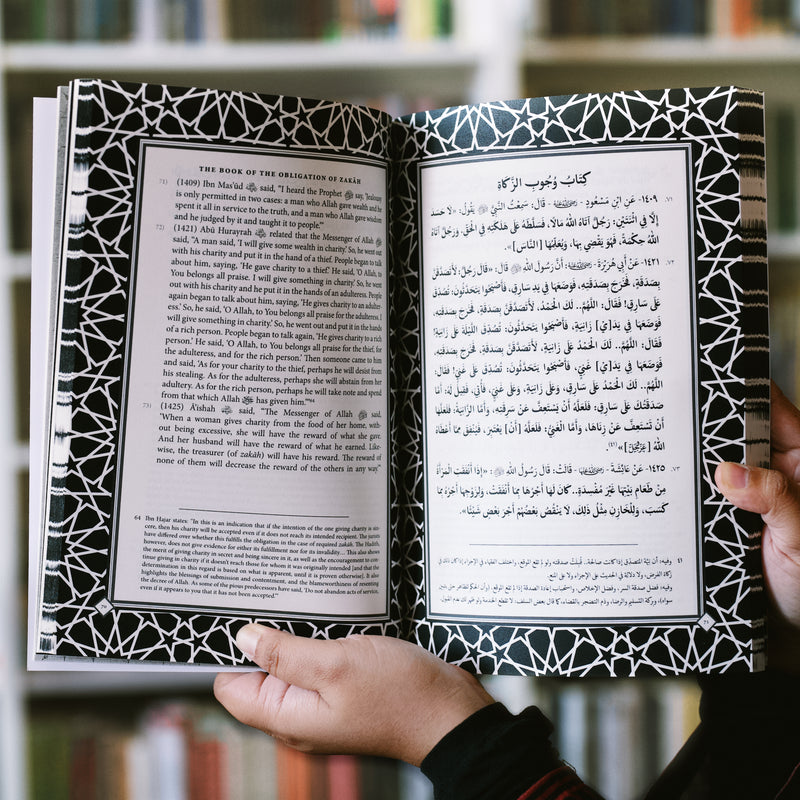 THE BOOK OF THE OBLIGATION OF ZAKĀH
71) (1409) Ibn Masʿūd ﷺ said, "I heard the Prophet ﷺ say, 'Jealousy
is only permitted in two cases: a man who Allah gave wealth and he
spent it all in service to the truth, and a man who Allah gave wisdom
and he judged by it and taught it to people.'"
72) (1421) Abū Hurayrah related that the Messenger of Allah ﷺ
said, "A man said, 'I will give some wealth in charity.' So, he went out
with his charity and put it in the hand of a thief. People began to talk
about him, saying, 'He gave charity to a thief.' He said, 'O Allah, to
You belongs all praise. I will give something in charity.' So, he went out
with his charity and he put it in the hands of an adulteress. People
again began to talk about him, saying, 'He gives charity to an adulter-
ess.' So, he said, 'O Allah, to You belongs all praise for the adulteress. I
will give something in charity.' So, he went out and put it in the hands
of a rich person. People began to talk again, 'He gives charity to a rich
person.' He said, 'O Allah, to You belongs all praise for the thief, for
the adulteress, and for the rich person.' Then someone came to him
and said, 'As for your charity to the thief, perhaps he will desist from
his stealing. As for the adulteress, perhaps she will abstain from her
adultery. As for the rich person, perhaps he will take note and spend
from that which Allah has given him.'"⁶⁴
73) (1425) Āʾishah said, "The Messenger of Allah ﷺ said,
'When a woman gives charity from the food of her home, with-
out being excessive, she will have the reward of what she gave.
And her husband will have the reward of what he earned. Like-
wise, the treasurer (of zakāh) will have his reward. The reward of
none of them will decrease the reward of the others in any way.'"
64 Ibn Ḥajar states: "In this is an indication that if the intention of the one giving charity is sin-
cere, then his charity will be accepted even if it does not reach its intended recipient. The jurists
have differed over whether this fulfills the obligation in the case of required zakāh. The Hadith,
however, does not give evidence for either its fulfillment nor for its invalidity... This also shows
the merit of giving charity in secret and being sincere in it, as well as the encouragement to con-
tinue giving in charity if it doesn't reach those for whom it was originally intended [and that the
determination in this regard is based on what is apparent, until it is proven otherwise]. It also
highlights the blessings of submission and contentment, and the blameworthiness of resenting
the decree of Allah. As some of the pious predecessors have said, 'Do not abandon acts of service,
even if it appears to you that it has not been accepted.'"
70
كِتَابُ وُجُوبِ الزَّكَاةِ
٧١. ١٤٠٩- عَنِ ابْنِ مَسْعُودٍ - قَالَ: سَمِعْتُ النَّبِيَّ ﷺ يَقُولُ: «لَا حَسَدَ
إِلَّا فِي اثْنَتَيْنِ: رَجُلٌ آتَاهُ اللهُ مَالًا، فَسَلَّطَهُ عَلَى هَلَكَتِهِ فِي الْحَقِّ، وَرَجُلٌ آتَاهُ
اللهُ حِكْمَةً، فَهُوَ يَقْضِي بِهَا، وَيُعَلِّمُهَا [النَّاسَ]».
٧٢. ١٤٢١- عَنْ أَبِي هُرَيْرَةَ - أَنَّ رَسُولَ اللهِ ﷺ قَالَ: «قَالَ رَجُلٌ: لَأَتَصَدَّقَنَّ
بِصَدَقَةٍ، فَخَرَجَ بِصَدَقَتِهِ، فَوَضَعَهَا فِي يَدِ سَارِقٍ، فَأَصْبَحُوا يَتَحَدَّثُونَ: تُصُدِّقَ
عَلَى سَارِقٍ! فَقَالَ: اللَّهُمَّ.. لَكَ الْحَمْدُ، لَأَتَصَدَّقَنَّ بِصَدَقَةٍ، فَخَرَجَ بِصَدَقَتِهِ،
فَوَضَعَهَا فِي يَدَ[يْ] زَانِيَةٍ، فَأَصْبَحُوا يَتَحَدَّثُونَ: تُصُدِّقَ اللَّيْلَةَ عَلَى زَانِيَةٍ!
فَقَالَ: اللَّهُمَّ.. لَكَ الْحَمْدُ عَلَى زَانِيَةٍ، لَأَتَصَدَّقَنَّ بِصَدَقَةٍ، فَخَرَجَ بِصَدَقَتِهِ،
فَوَضَعَهَا فِي يَدَ[يْ] غَنِيٍّ، فَأَصْبَحُوا يَتَحَدَّثُونَ: تُصُدِّقَ عَلَى غَنِيٍّ! فَقَالَ:
اللَّهُمَّ.. لَكَ الْحَمْدُ عَلَى سَارِقٍ، وَعَلَى زَانِيَةٍ، وَعَلَى غَنِيٍّ، فَأُتِيَ، فَقِيلَ لَهُ: أَمَّا
صَدَقَتُكَ عَلَى سَارِقٍ، فَلَعَلَّهُ أَنْ يَسْتَعِفَّ عَنْ سَرِقَتِهِ، وَأَمَّا الزَّانِيَةُ: فَلَعَلَّهَا
أَنْ تَسْتَعِفَّ عَنْ زِنَاهَا، وَأَمَّا الْغَنِيُّ: فَلَعَلَّهُ [أَنْ] يَعْتَبِرَ، فَيُنْفِقَ مِمَّا أَعْطَاهُ
اللهُ [عَزَّ وَجَلَّ]»(٤١).
٧٣. ١٤٢٥- عَنْ عَائِشَةَ - قَالَتْ: قَالَ رَسُولُ اللهِ ﷺ: «إِذَا أَنْفَقَتِ الْمَرْأَةُ
مِنْ طَعَامِ بَيْتِهَا غَيْرَ مُفْسِدَةٍ.. كَانَ لَهَا أَجْرُهَا بِمَا أَنْفَقَتْ، وَلِزَوْجِهَا أَجْرُهُ بِمَا
كَسَبَ، وَلِلْخَازِنِ مِثْلُ ذَلِكَ، لَا يَنْقُصُ بَعْضُهُمْ أَجْرَ بَعْضٍ شَيْئًا».
٤١ وفيه: أن نيّة المتصدّق إذا كانت صالحة.. قُبِلَتْ صدقته ولو لم تقع الموقع، واختلف الفقهاء في الإجزاء إذا كان ذلك في
زكاة الفرض، ولا دلالة في الحديث على الإجزاء ولا على المنع.
وفيه: فضل صدقة السر، وفضل الإخلاص، واستحباب إعادة الصدقة إذا لم تقع الموقع، وأن الحكم للظاهر حتى يتبين
سواه، وبركة التسليم والرضا، وذم التضجر بالقضاء، كما قال بعض السلف: لا تقطع الخدمة ولو ظهر لك عدم القبول.
71